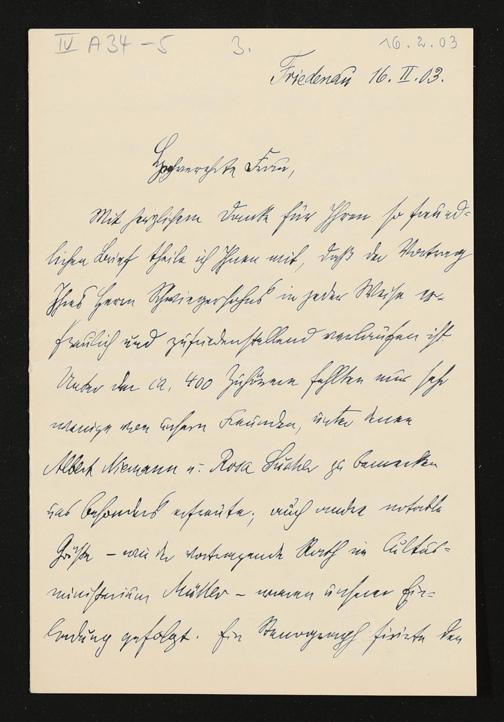 IV A34-5 3. 16.2.03
Friedenau 16. II. 03.
Hochverehrte Frau,
Mit herzlichem Danke für Ihren so freund-
lichen Brief theile ich Ihnen mit, daß der Vortrag
Ihres Herrn Schwiegersohns in jeder Weise er-
freulich und zufriedenstellend verlaufen ist
Unter den ca. 400 Zuhörern fehlten nur sehr
wenige von unsern Freunden, unter denen
Albert Niemann u. Rosa Sucher zu bemerken
uns besonders erfreute; auch andre notable
Gäste – wie der vortragende Rath im Cultus-
ministerium Müller – waren unserer Ein-
ladung gefolgt. Ein Stenograph fixirte den